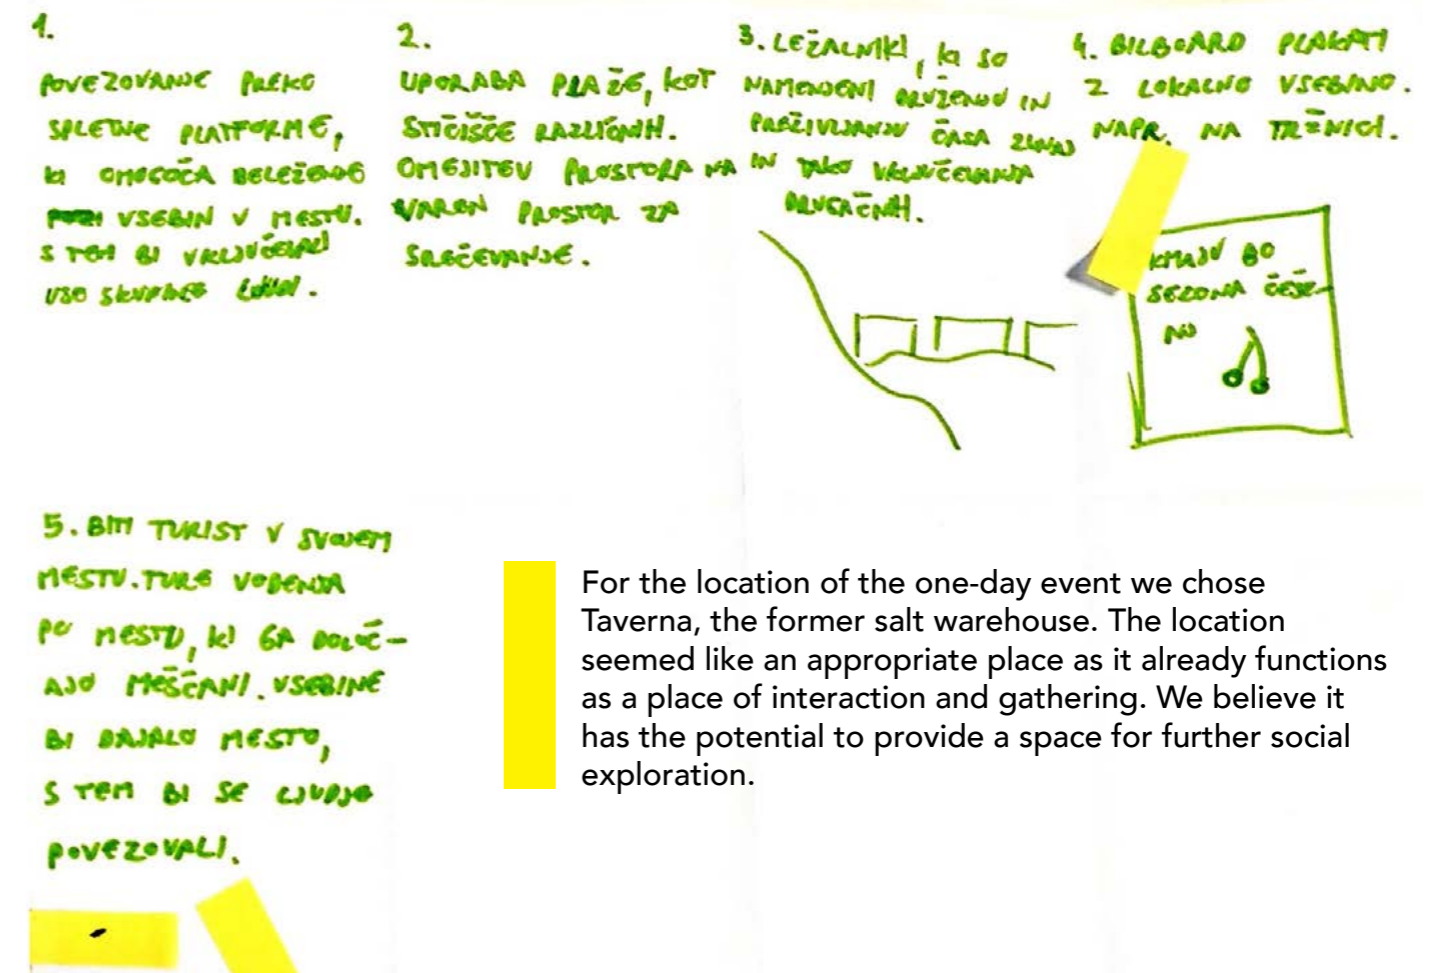 1.
POVEZOVANJE PREKO
SPLETNE PLATFORME,
KI OMOGOČA BELEŽENJE
VSEBIN V MESTU.
S TEM BI VKLJUČEVALI
VSO SKUPINE LJUDI.
2.
UPORABA PLAŽE, KOT
STIČIŠČE RAZLIČNIH.
OMEJITEV PROSTORA NA
VAREN PROSTOR ZA
SREČEVANJE.
3. LEŽALNIKI, KI SO
NAMENJENI DRUŽENJU IN
PREŽIVLJANJU ČASA ZUNAJ
IN TAKO VKLJUČEVANJA
DRUGAČNIH.
4. BILBOARD PLAKATI
Z LOKALNO VSEBINO.
NAPR. NA TRŽNICI.
KMALU BO
SEZONA ČEŠE-
NJ
5. BITI TURIST V SVOJEM
MESTU. TURE VODENJA
PO MESTU, KI GA DOLOČ-
AJO MEŠČANI. VSEBINE
BI DAJALO MESTO,
S TEM BI SE LJUDJE
POVEZOVALI.
For the location of the one-day event we chose
Taverna, the former salt warehouse. The location
seemed like an appropriate place as it already functions
as a place of interaction and gathering. We believe it
has the potential to provide a space for further social
exploration.